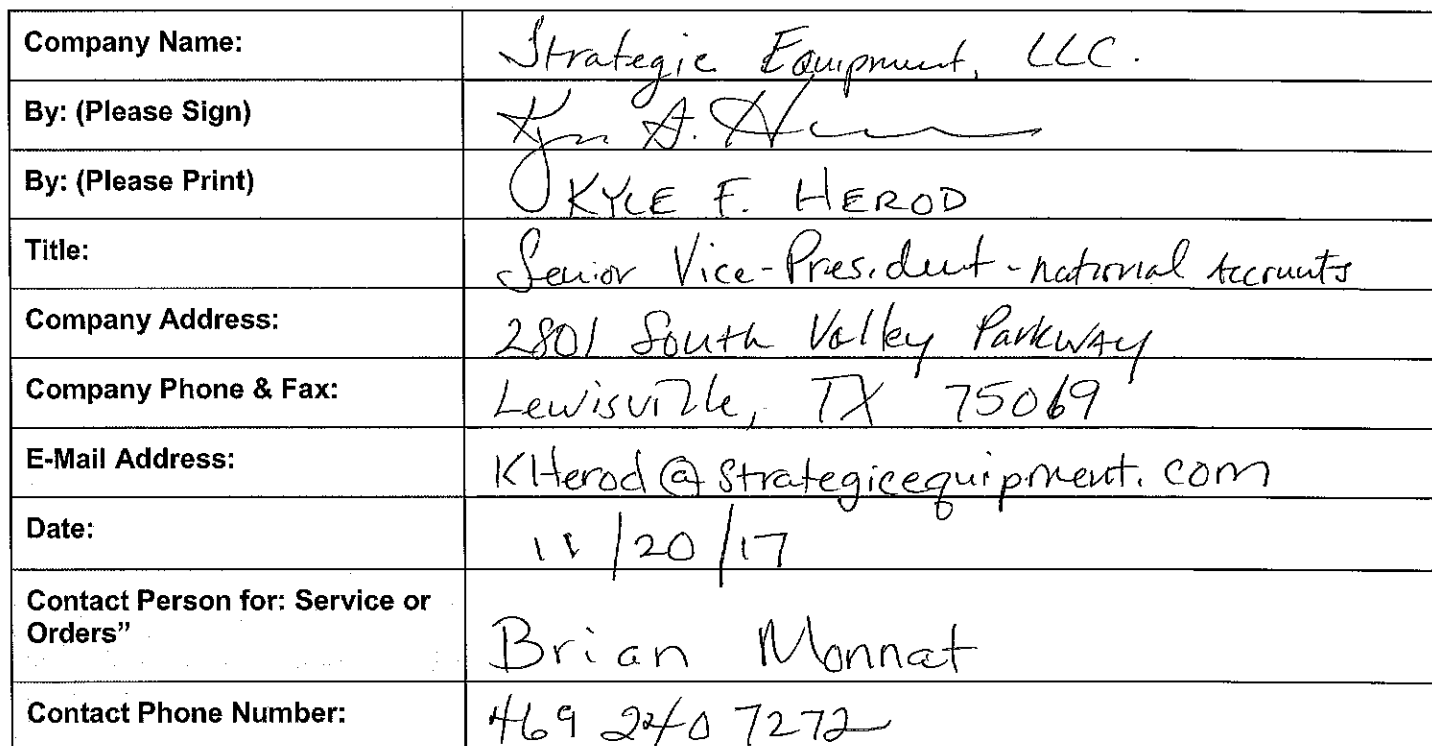 Company Name: Strategic Equipment, LLC.
By: (Please Sign)
By: (Please Print) KYLE F. HEROD
Title: Senior Vice-President - national Accounts
Company Address: 2801 South Valley Parkway
Company Phone & Fax: Lewisville, TX 75069
E-Mail Address: KHerod@strategicequipment.com
Date: 11/20/17
Contact Person for: Service or
Orders” Brian Monnat
Contact Phone Number: 469 240 7272